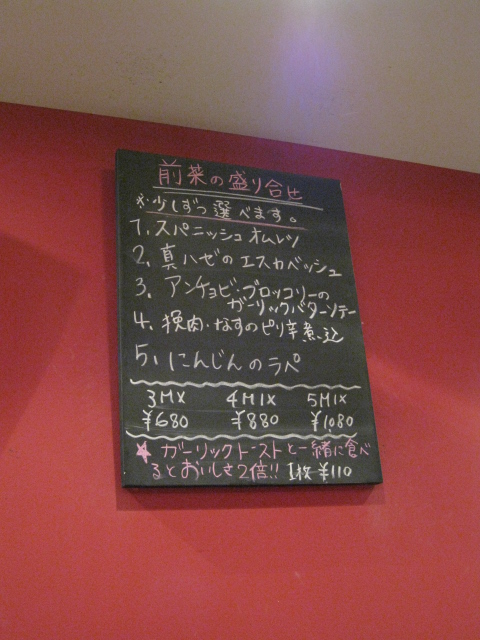 前菜の盛り合せ
※少しずつ選べます。
1. スパニッシュオムレツ
2. 真ハゼのエスカベッシュ
3. アンチョビ・ブロッコリーの
ガーリックバターソテー
4. 挽肉・なすのピリ辛煮込
5. にんじんのラペ
3MIX 4MIX 5MIX
¥680 ¥880 ¥1080
★ ガーリックトーストと一緒に食べ
るとおいしさ2倍!! 1枚 ¥110